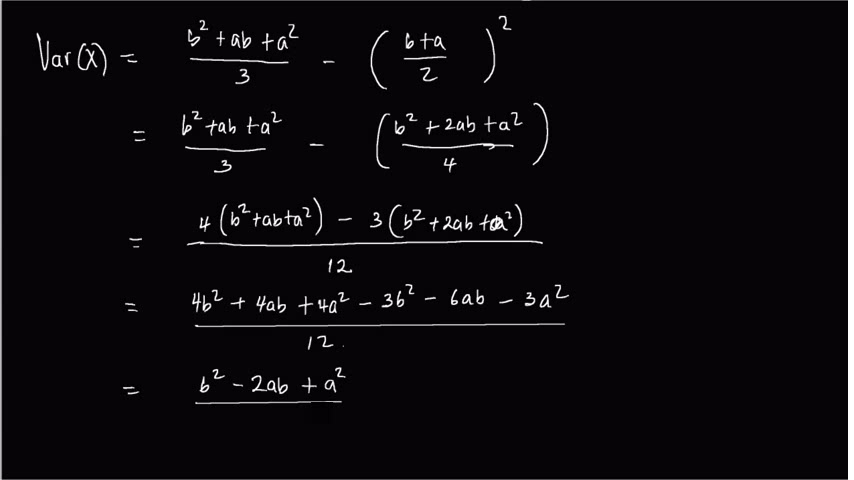 Var(X) = \frac{b^2 + ab + a^2}{3} - \left( \frac{b+a}{2} \right)^2
= \frac{b^2 + ab + a^2}{3} - \left( \frac{b^2 + 2ab + a^2}{4} \right)
= \frac{4(b^2 + ab + a^2) - 3(b^2 + 2ab + a^2)}{12}
= \frac{4b^2 + 4ab + 4a^2 - 3b^2 - 6ab - 3a^2}{12.}
= \frac{b^2 - 2ab + a^2}{}